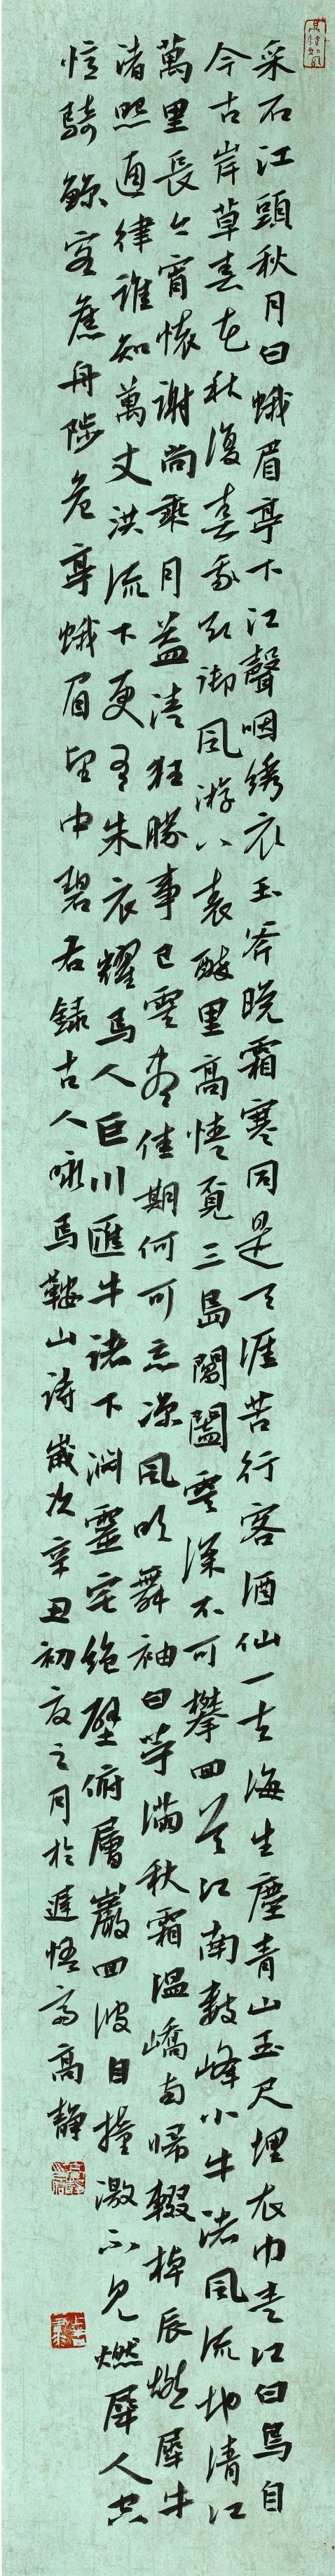 采石江頭秋月白蛾眉亭下江聲咽綉衣玉斧晚霜寒同是天涯苦行客酒仙一去海生塵青山玉尺埋衣巾春江白鳥自
今古岸草春花秋復春我欲御風游八表醉里高情覓三島閶闔雲深不可攀回首江南數峰小牛渚風流地清江
萬里長今宵懷謝尚乘月益清狂勝事已雲盡佳期何可忘涼風吹舞袖白苧滿秋霜温嶠南歸輟棹辰燃犀牛
渚照通津誰知萬丈洪流下更有朱衣躍馬人巨川匯牛渚下瀾靈宅絶壁俯層巖回波自撞激不見燃犀人空
憶騎鯨客維舟陟危亭蛾眉望中碧右録古人咏馬鞍山詩歲次辛丑初夏之月於遲悟齋高静